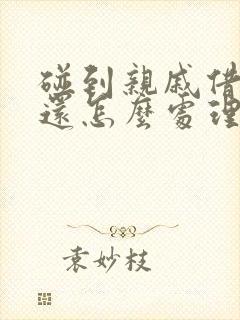 碰到親戚借
還怎麼處理
袁妙枝